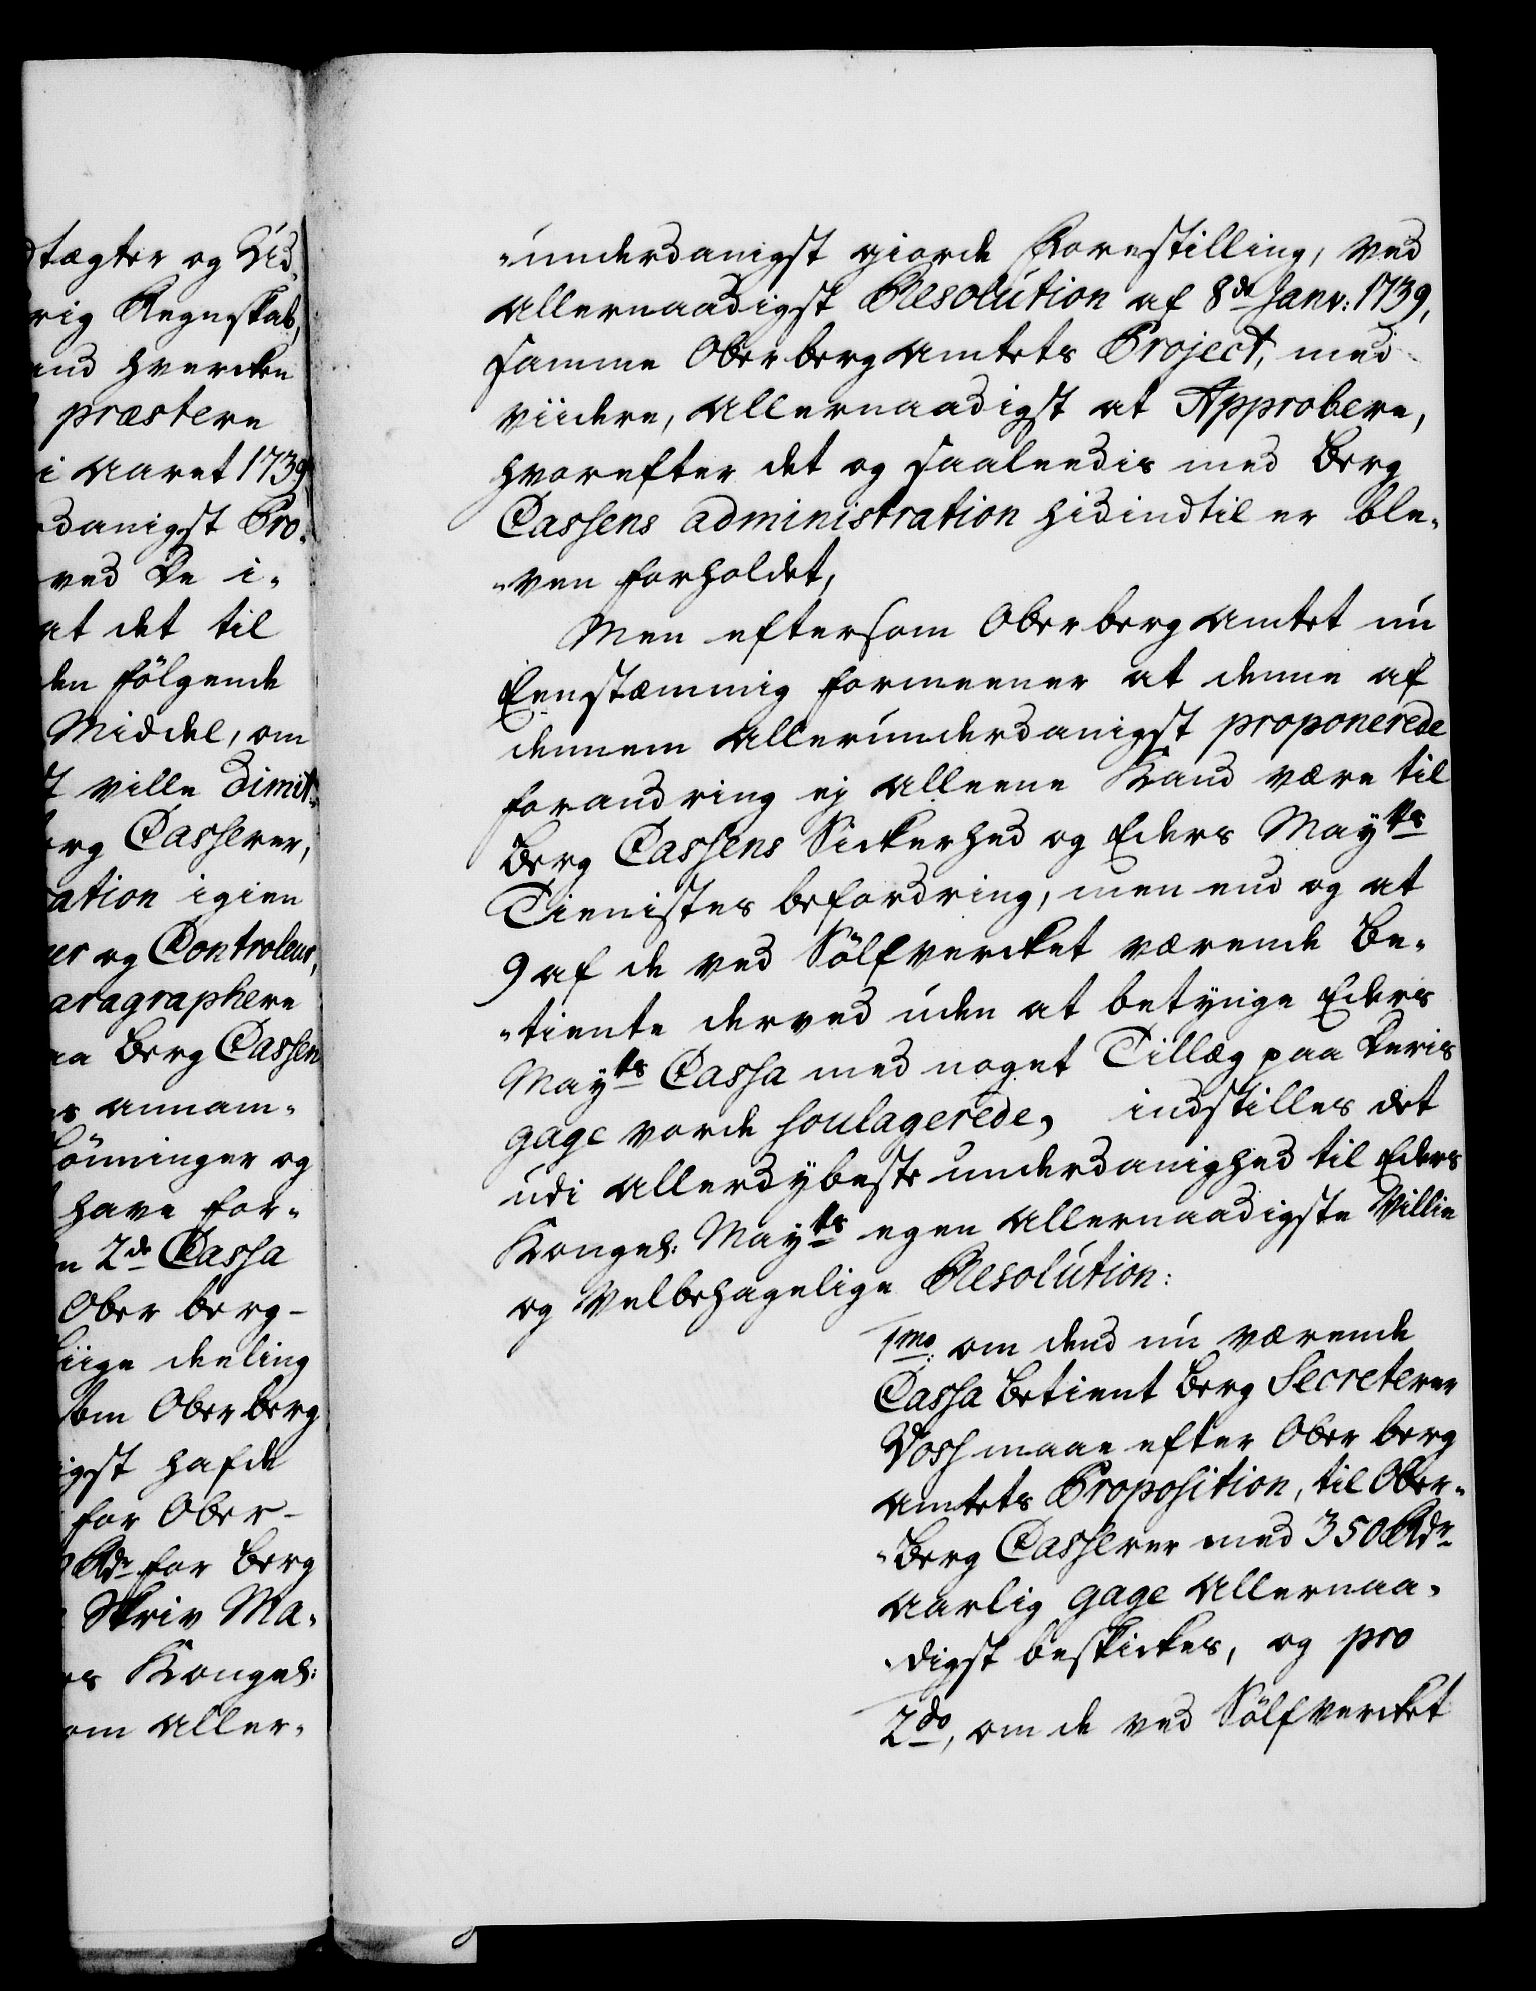 dtægter og Ud¬
rig Regnskab,
and hvercken
præstere
i Aaret 1739
danigst Pro¬
ved De i¬
at det til
den følgende
Middel, om
ville dimit¬
erg Casserer,
ation igien
er og Controleur,
aragraphere
aa Berg Cassen
annam¬
lönninger og
have for¬
2de Cassa
Ober berg-
liige deeling
som Ober berg
igst hafde
for Ober-
Rdr for Berg
Skriv Ma¬
Kongel:
om Aller¬
¬underdanigst giorde Forestilling, ved
Allernaadigst Resolution af 8de Janv: 1739,
samme Oberberg Amtets Project, med
viidere, Allernaadigst at Approbere,
hvorefter det og saaleedis med Berg
Cassens administration hidindtil er ble¬
¬ven forholdet,
Men eftersom Oberberg Amtet nu
Eenstæmmig formeener at denne af
dennem Allerunderdanigst proponerede
forandring ej alleene Kand være til
Berg Cassens Sickerhed og Eders Mayts
Tienistes befordring, men end og at
9 af de ved Sölfvercket værende Be¬
¬tiente derved uden at betynge Eders
Mayts Cassa med noget Tillæg paa Deris
gage vorde soulagerede, indstilles det
udi Allerdybeste underdanighed til Eders
Kongel: Mayts egen Allernaadigste Villie
og Velbehagelige Resolution:
1mo: om dend nu værende
Cassa Betient Berg Secreterer
Voss maae efter Ober berg
Amtets Proposition, til Ober¬
¬Berg Casserer med 350 Rdr
Aarlig gage Allernaa¬
¬digst beskickes, og pro
2do, om de ved Sölfvercket